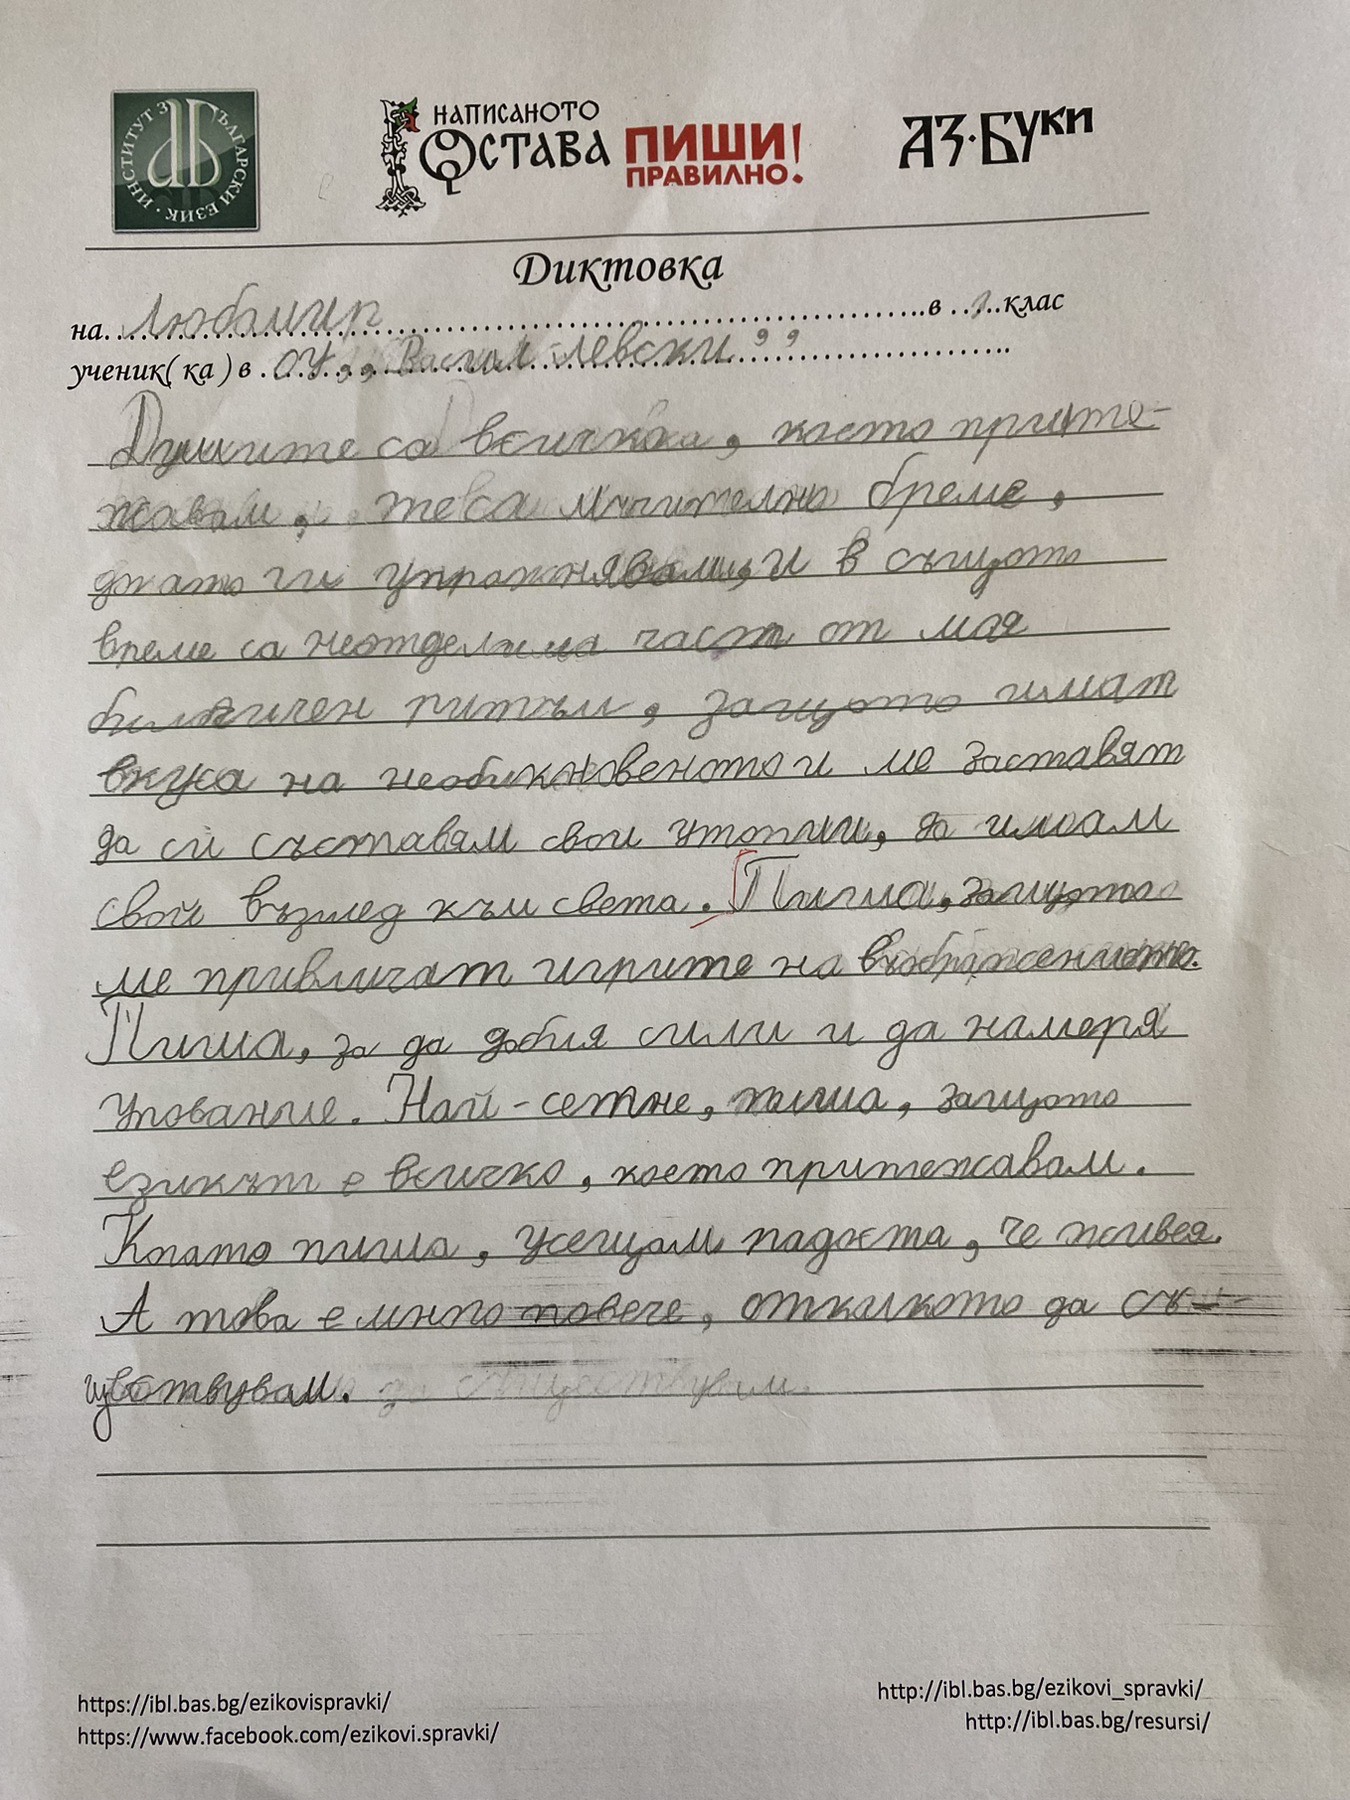 ИНСТИТУТ ЗА БЪЛГАРСКИ ЕЗИК
НАПИСАНОТО
ОСТАВА
ПИШИ
ПРАВИЛНО!
АЗ·БУКИ
Диктовка
на Любомир в клас
ученик(ка) в ОУ ,,Васил Левски"
Думите са всичко, което прите-
жавам, те са мъчително бреме,
докато ги упражнявам, и в същото
време са неотделима част от моя
биологичен ритъм, защото имат
вкуса на необикновеното и ме заставят
да си съставям свои утопии, да имам
свой възглед към света. Пиша, защото
ме привличат игрите на въображението.
Пиша, за да добия сили и да намеря
упование. Най-сетне, пиша, защото
езикът е всичко, което притежавам.
Когато пиша, усещам радостта, че живея.
А това е много повече, отколкото да съ-
ществувам.
https://ibl.bas.bg/ezikovispravki/
https://www.facebook.com/ezikovi.spravki/
http://ibl.bas.bg/ezikovi_spravki/
http://ibl.bas.bg/resursi/